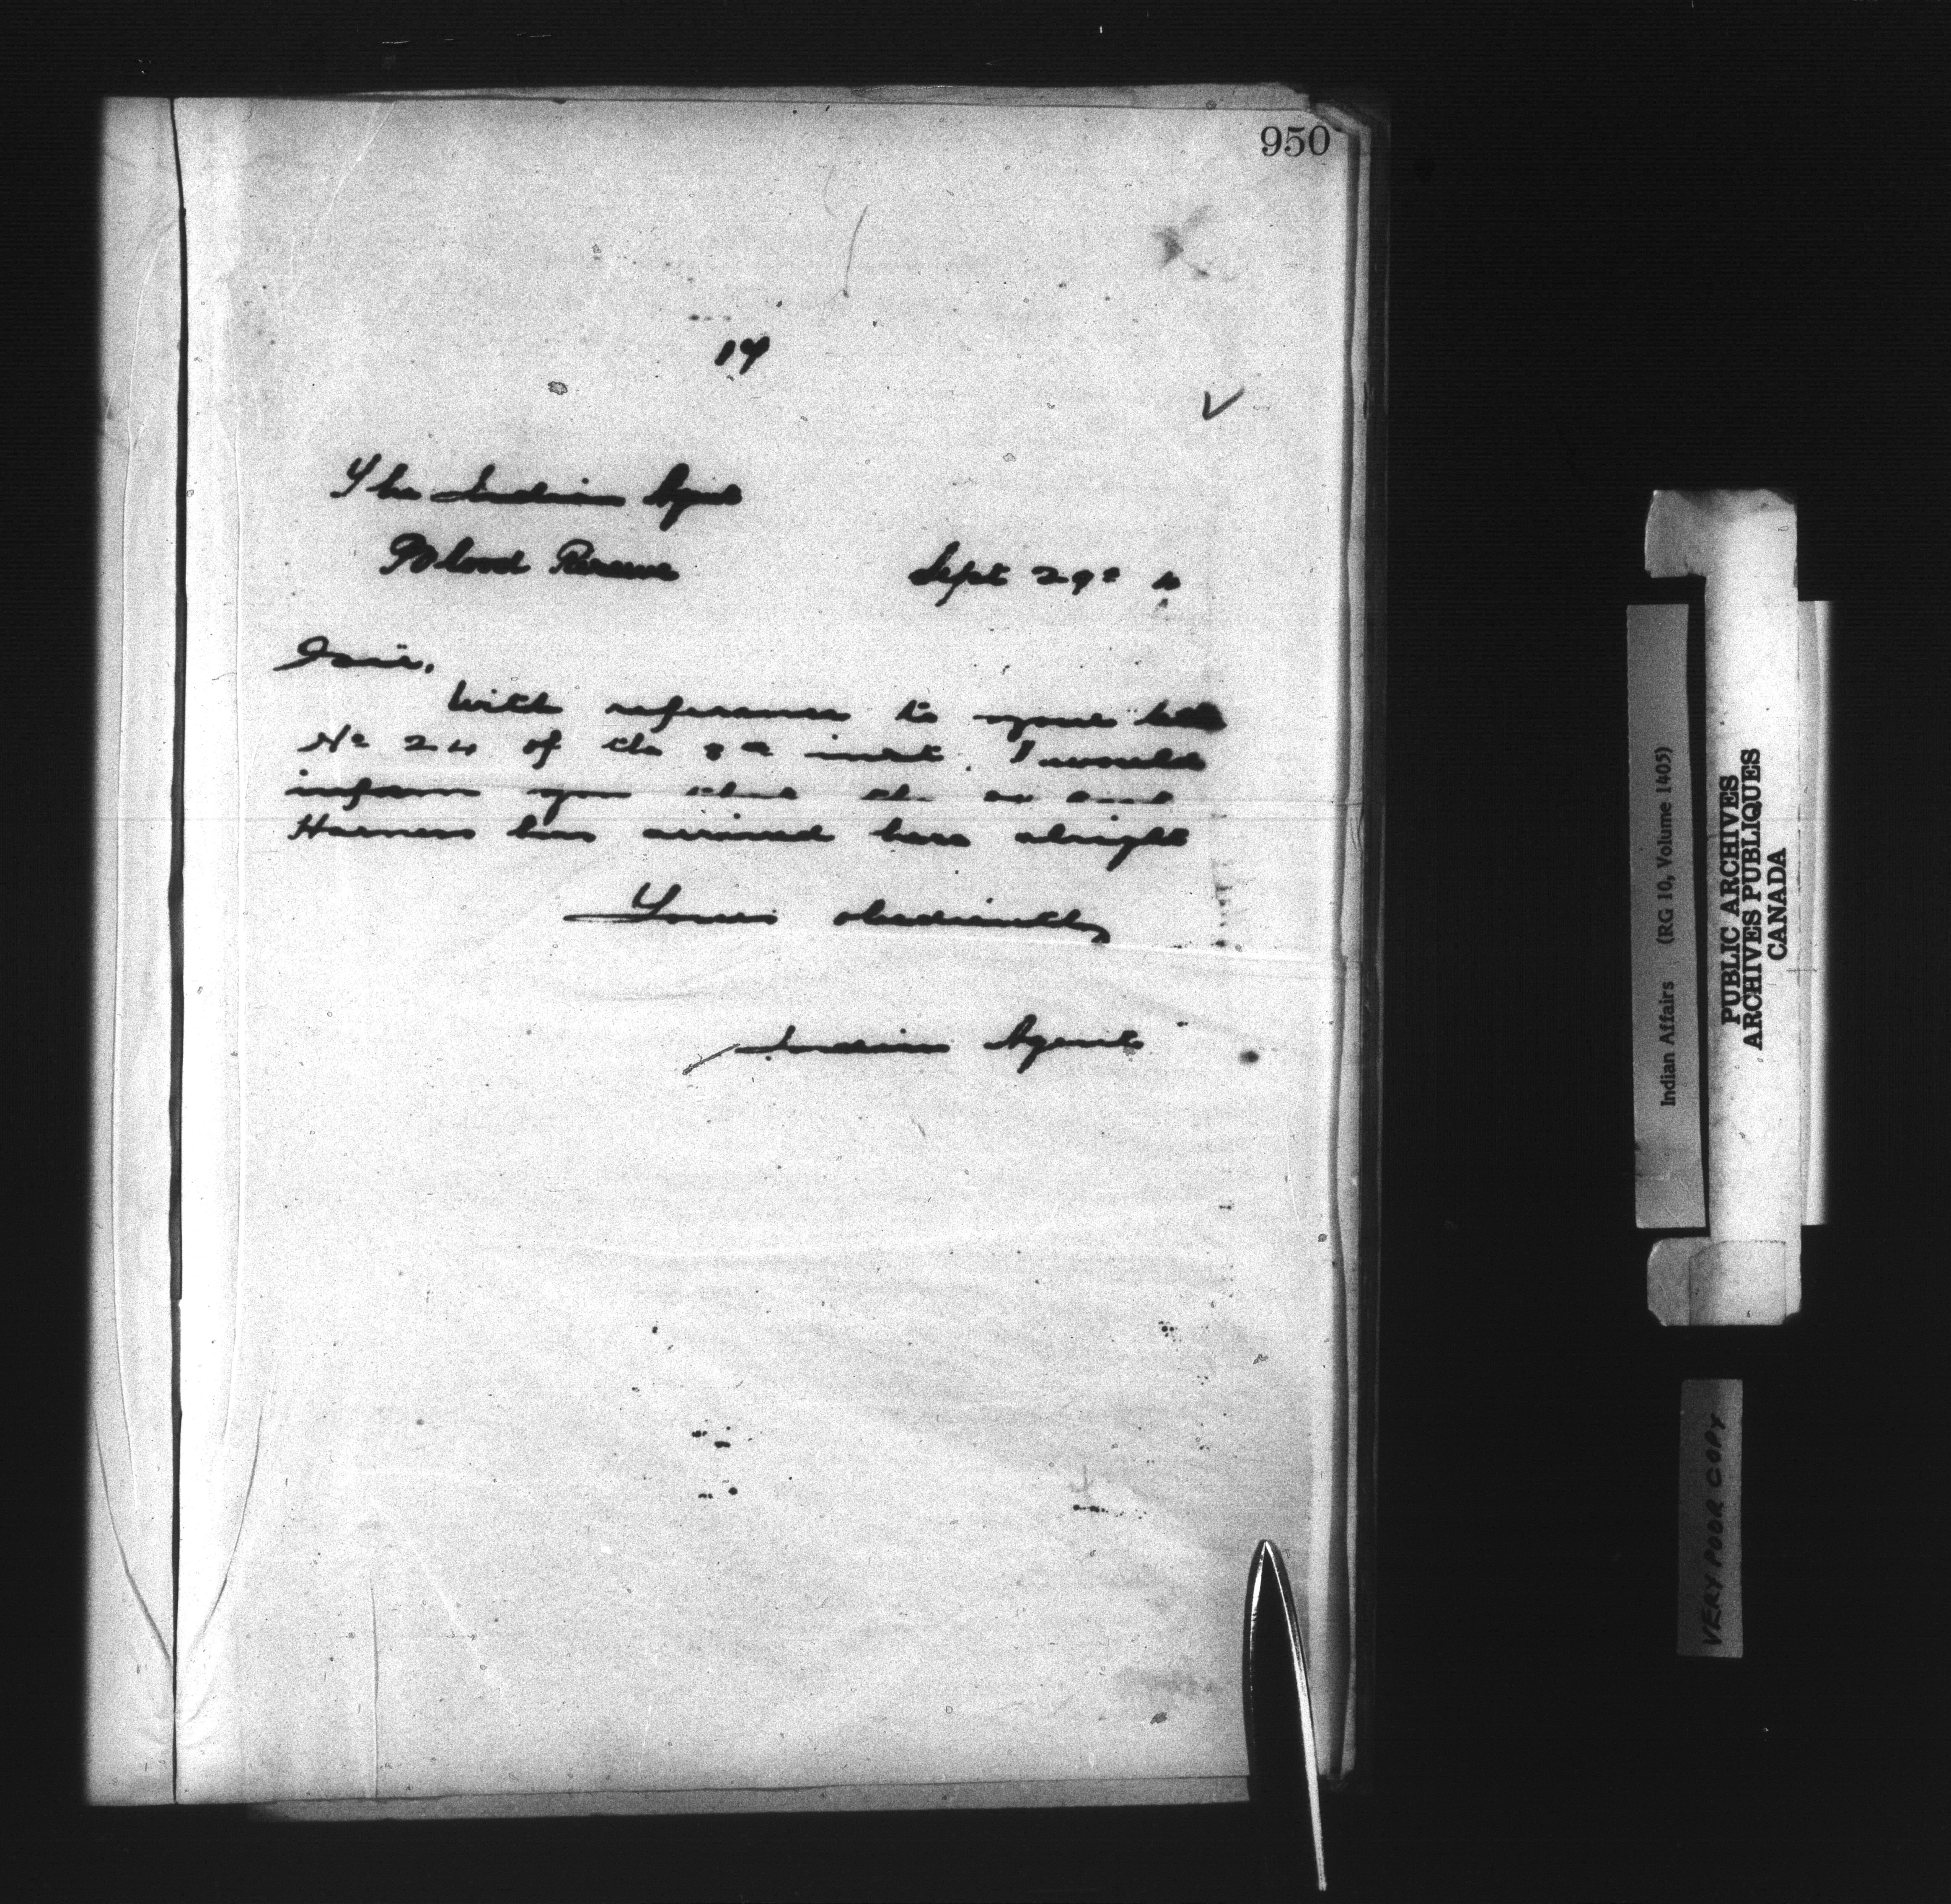 950
19
The Indian Agent
Blood Reserve Sept 29th
Sir,
With reference to your letter
No 24 of the inst. I would
inform you that the
Harness has arrived here alright
Yours obediently
Indian Agent
Indian Affairs (RG 10, Volume 1405)
PUBLIC ARCHIVES
ARCHIVES PUBLIQUES
CANADA
VERY POOR COPY